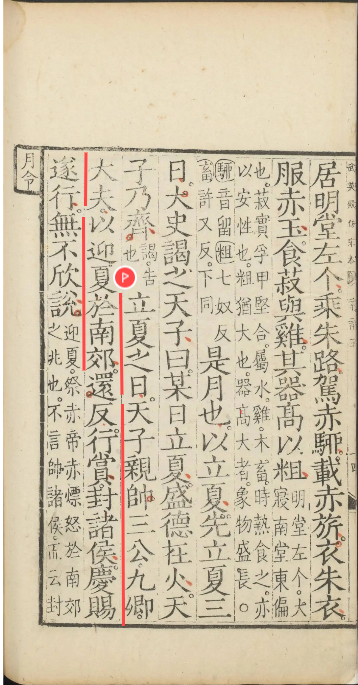 居明堂左个乘朱路駕赤駵載赤旂衣朱衣
服赤玉食菽與雞其器高以粗明堂左个大寢南堂東偏
也菽實孚甲堅合屬水雞木畜時熱食之亦
以安性也粗猶大也器高大者象物盛長○
駵音留粗七奴反畜許又反下同是月也以立夏先立夏三
日大史謁之天子曰某日立夏盛德在火天
子乃齊謁告也立夏之日天子親帥三公九卿
大夫以迎夏於南郊還反行賞封諸侯慶賜
遂行無不欣說迎夏祭赤帝赤熛怒於南郊之兆也不言帥諸侯而云封
月令